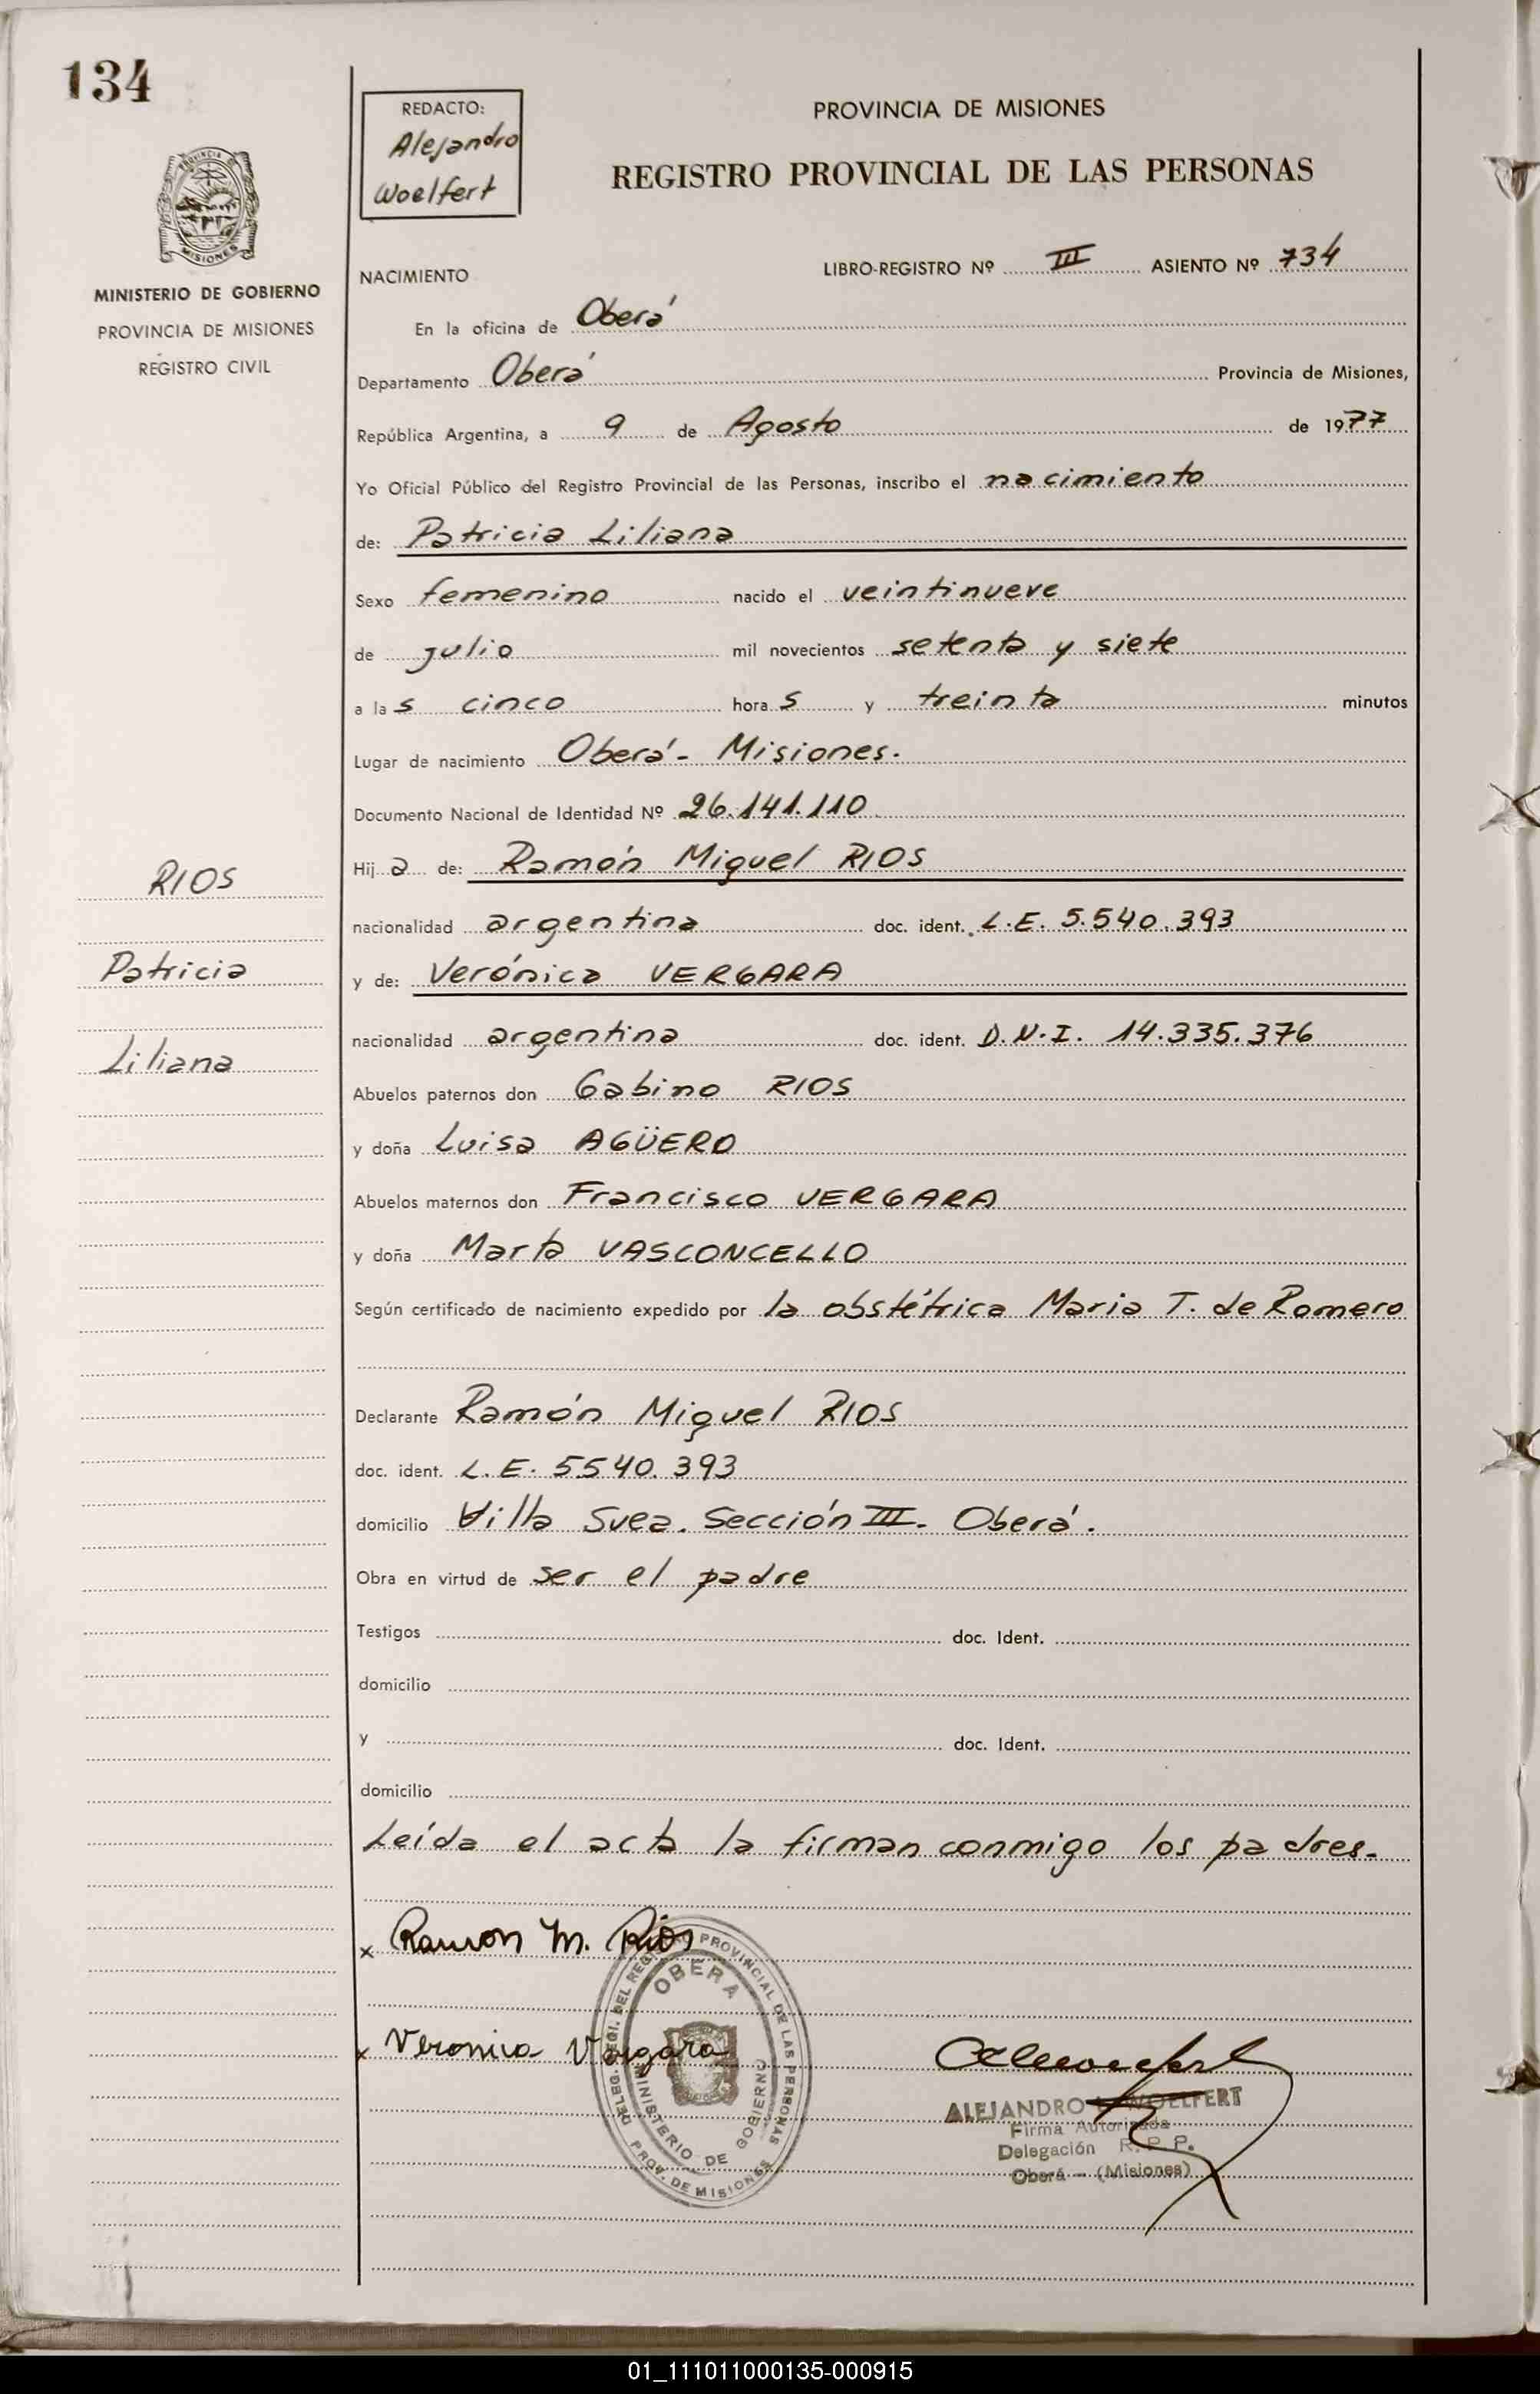 134
REDACTO:
Alejandro
Woelfert
PROVINCIA DE MISIONES
REGISTRO PROVINCIAL DE LAS PERSONAS
PROVINCIA DE
MISIONES
MINISTERIO DE GOBIERNO
PROVINCIA DE MISIONES
REGISTRO CIVIL
NACIMIENTO
LIBRO-REGISTRO Nº III ASIENTO Nº 734
En la oficina de Oberá
Departamento Oberá Provincia de Misiones,
República Argentina, a 9 de Agosto de 1977
Yo Oficial Público del Registro Provincial de las Personas, inscribo el nacimiento
de: Patricia Liliana
Sexo femenino nacido el veintinueve
de julio mil novecientos setenta y siete
a las cinco horas y treinta minutos
Lugar de nacimiento Oberá - Misiones.
Documento Nacional de Identidad Nº 26.141.110
Hija de: Ramón Miguel RIOS
nacionalidad argentina doc. ident. L.E. 5.540.393
y de: Verónica VERGARA
nacionalidad argentina doc. ident. D.N.I. 14.335.376
Abuelos paternos don Gabino RIOS
y doña Luisa AGÜERO
Abuelos maternos don Francisco VERGARA
y doña Marta VASCONCELLO
Según certificado de nacimiento expedido por la obstétrica Maria T. de Romero
Declarante Ramón Miguel RIOS
doc. ident. L.E. 5540.393
domicilio Villa Svea. Sección III - Oberá.
Obra en virtud de ser el padre
Testigos doc. Ident.
domicilio
y doc. Ident.
domicilio
Leída el acta la firman conmigo los padres.-
RIOS
Patricia
Liliana
x Ramon M. Rios
x Veronica Vergara
DELEG. DEL REGI PROVINCIAL DE LAS PERSONAS
OBERA
MINISTERIO DE GOBIERNO
PROV. DE MISIONES
ALEJANDRO WOELFERT
Firma Autorizada
Delegación R. P. P.
Oberá - (Misiones)
01_111011000135-000915